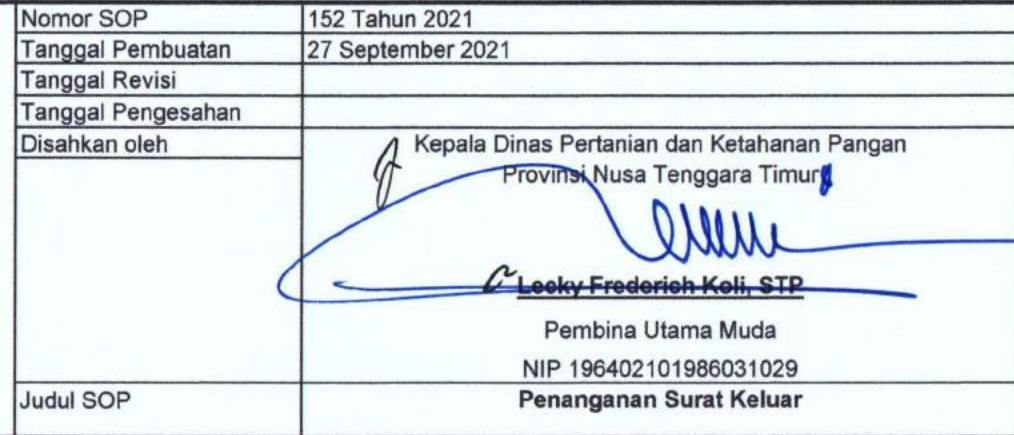 Nomor SOP 152 Tahun 2021
Tanggal Pembuatan 27 September 2021
Tanggal Revisi
Tanggal Pengesahan
Disahkan oleh Kepala Dinas Pertanian dan Ketahanan Pangan
Provinsi Nusa Tenggara Timur
Lecky Frederich Koli, STP
Pembina Utama Muda
NIP 196402101986031029
Judul SOP Penanganan Surat Keluar